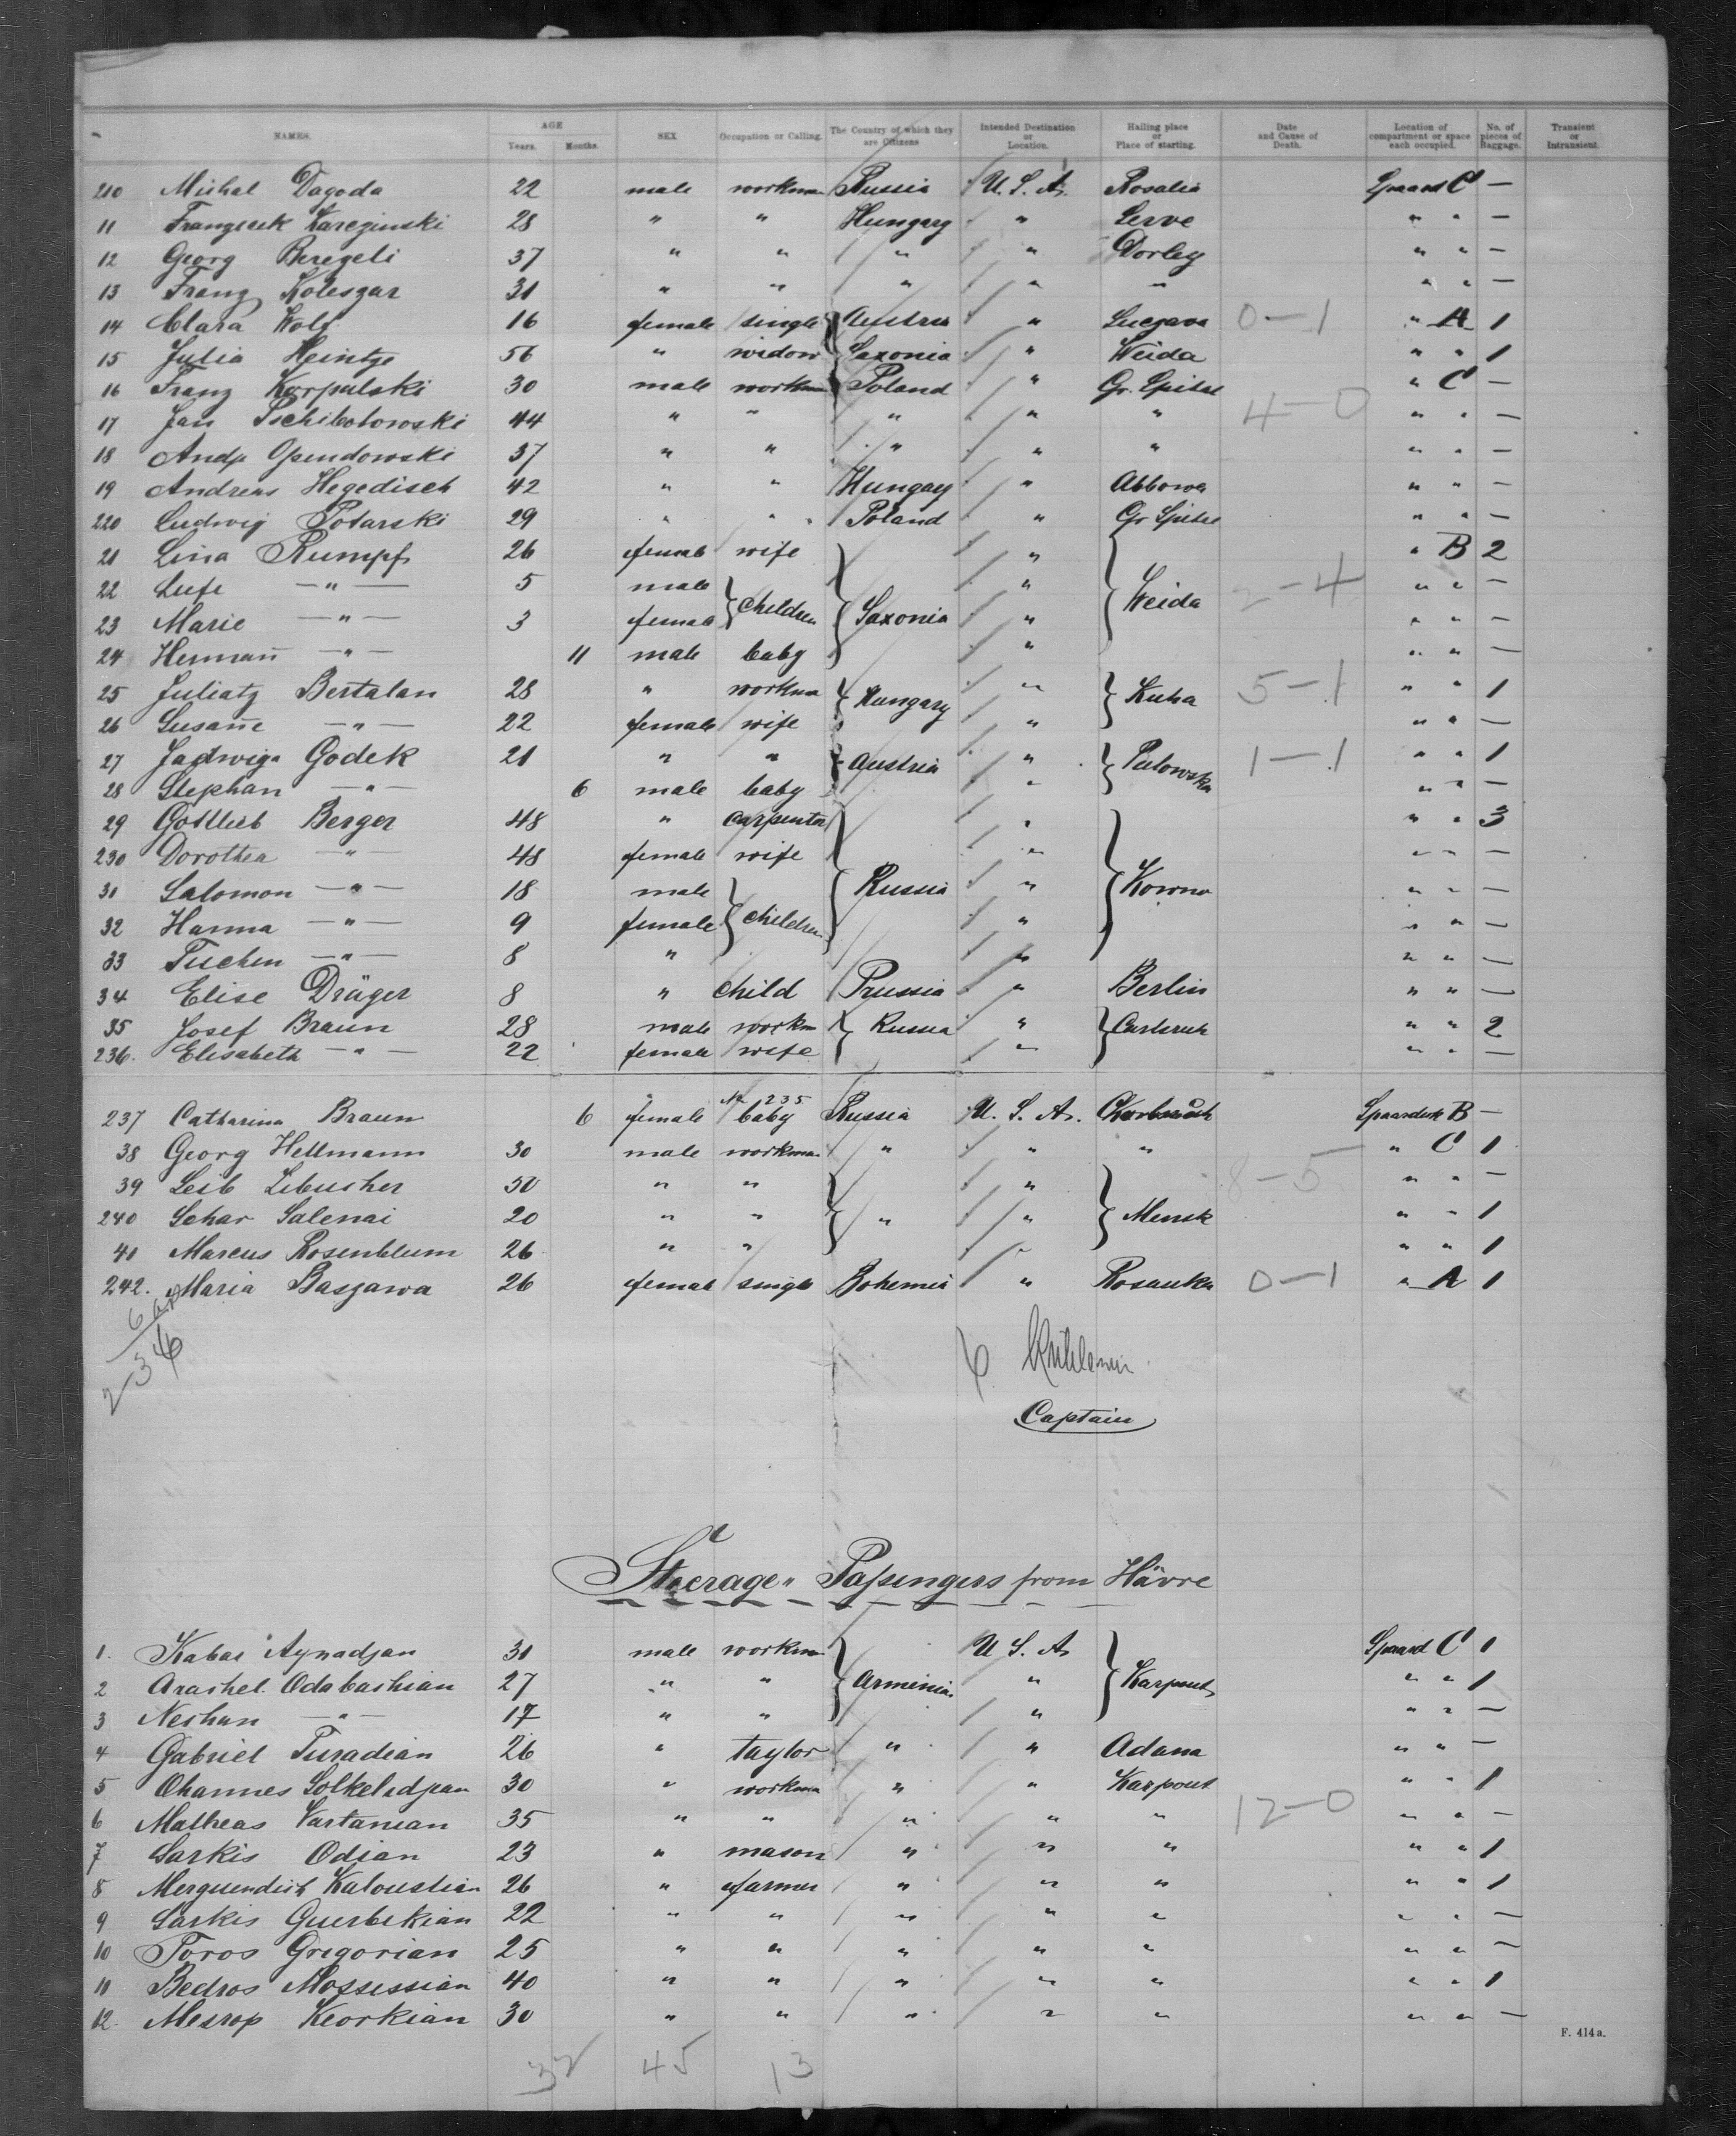 NAMES. AGE Years. Months. SEX Occupation or Calling. The Country of which they are Citizens Intended Destination or Location. Hailing place or Place of starting. Date and Cause of Death. Location of compartment or space each occupied. No. of pieces of Baggage. Transient or Intransient.
210 Michal Dagoda 22 male workman Russia U. S. A. Rosalia C —
11 28 " " Hungary " Serve " " —
12 Georg Beregeli 37 " " " " Dorley " " —
13 Franz Koleszar 31 " " " " " " " —
14 Clara Wolf 16 female single Austria " 0—1 " A 1
15 Julia Heintze 56 " widow Saxonia " Weida " " 1
16 Franz Korpulski 30 male workman Poland " Gr. " C —
17 Jan 44 " " " " " 4—0 " " —
18 Andr Opendowski 37 " " " " " " " —
19 Andreas Hegedisch 42 " " Hungary " Abbowa " " —
220 Ludwig Potarski 29 " " Poland " Gr " " —
21 Lina Rumpf 26 female wife " " B 2
22 —"— 5 male children Saxonia " Weida 2—4 " " —
23 Marie —"— 3 female " " " —
24 Hermañ —"— 11 male baby " " " —
25 Juliatz Bertalan 28 " workman Hungary " Kuha 5—1 " " 1
26 Susañe —"— 22 female wife " " " —
27 Jadwiga Godek 21 " " Austria " 1—1 " " 1
28 Stephan —"— 6 male baby " " " —
29 Gottlieb Berger 48 " carpenter " " " 3
230 Dorothea —"— 48 female wife " " " —
31 Salomon —"— 18 male children Russia " Kowno " " —
32 Hanna —"— 9 female " " " —
33 Tischen —"— 8 " " " " —
34 Elise Dräger 8 " child Prussia " Berlin " " —
35 Josef Braun 28 male workm Russia " Carlsruh " " 2
236. Elisabeth —"— 22 female wife " " " —
237 Catharina Braun 6 female N. 235 baby Russia U. S. A. B —
38 Georg Hellmann 30 male workman " " " " C 1
39 Leib Libusher 30 " " " 8—5 " " —
240 Schar Salenai 20 " " " " Minsk " " 1
41 Marcus Rosenblum 26 " " " " " 1
242. Maria Baszawa 26 female single Bohemia " Rosauka 0—1 " A 1
Captain
Steerage Passengers from Hâvre
1. Kabar Aynadjan 31 male workman U S. A. C 1
2 Arashel Odabashian 27 " " Armenia " Karpout " " 1
3 Neshan —"— 17 " " " " " —
4 Gabriel Turadian 26 " taylor " " Adana " " —
5 Ohannes 30 " workman " " Karpout " " 1
6 Matheas Vartanian 35 " " " " " 12—0 " " —
7 Sarkis Odian 23 " mason " " " " " 1
8 Merguendish Kaloustian 26 " farmer " " " " " 1
9 Sarkis Guerbekian 22 " " " " " " " —
10 Toros Gregorian 25 " " " " " " " —
11 Bedros Mossessian 40 " " " " " " " 1
12. Mesrop Keorkian 30 " " " " " " " —
F. 414a.
45 13